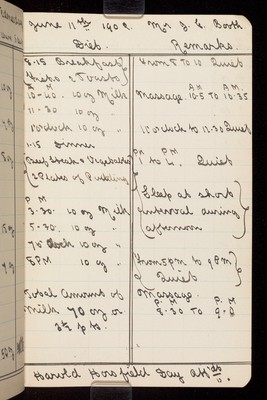 June 11th 1902. Mr J. E. Booth
Diet. Remarks.
8.15 Breakfast From 5 to 10 Quiet
A M A M A M
9-40. 10 oz Milk Massage 10.5 to 10.35
11-30 10 oz "
10 oz " 10 oclock to 11.30 Quiet
1.15 Dinner P M P M
Beef Steak & Vegetables 1 to 4. Quiet
2 Plates of Pudding
P M Sleep at short
3-30. 10 oz Milk interval during
5-30. 10 oz " afternoon
7 o clock 10 oz "
8 P M 10 oz " From 5 pm to 9 P M
Quiet
Total Amount of Massage.
Milk 70 oz or P. M P. M
3½ pts. 8-30 to 9.0
Harold Horsfield Day Att